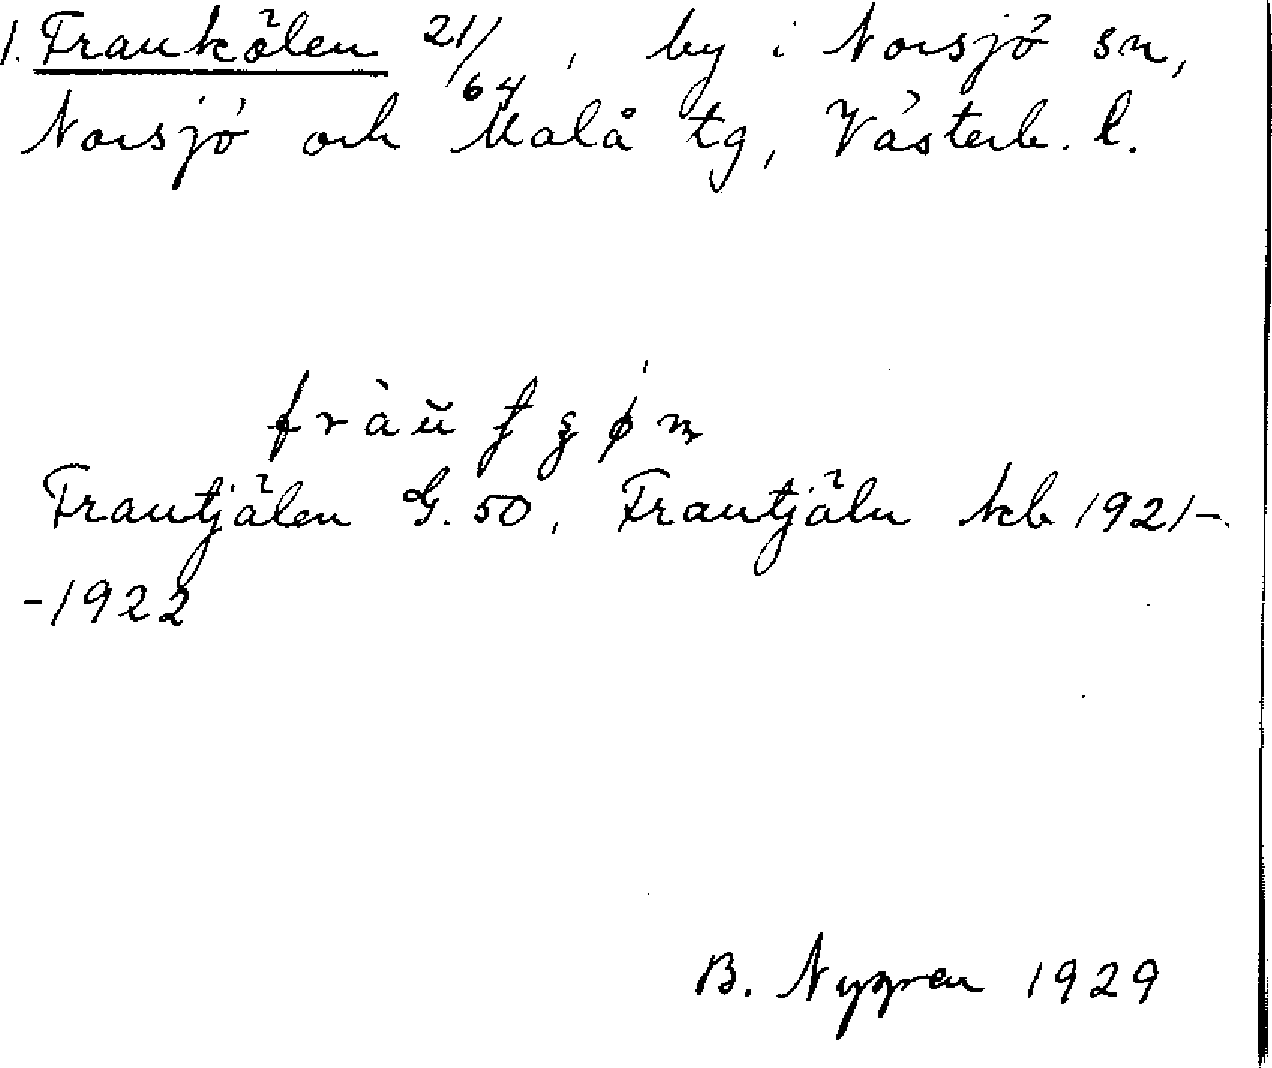 1. Fraukälen 21/64, by i Norsjö sn,
Norsjö och Malå tg, Västerb. l.
Frautjälen G. 50, Frautjäln kb 1921-
-1922
B. Nygren 1929